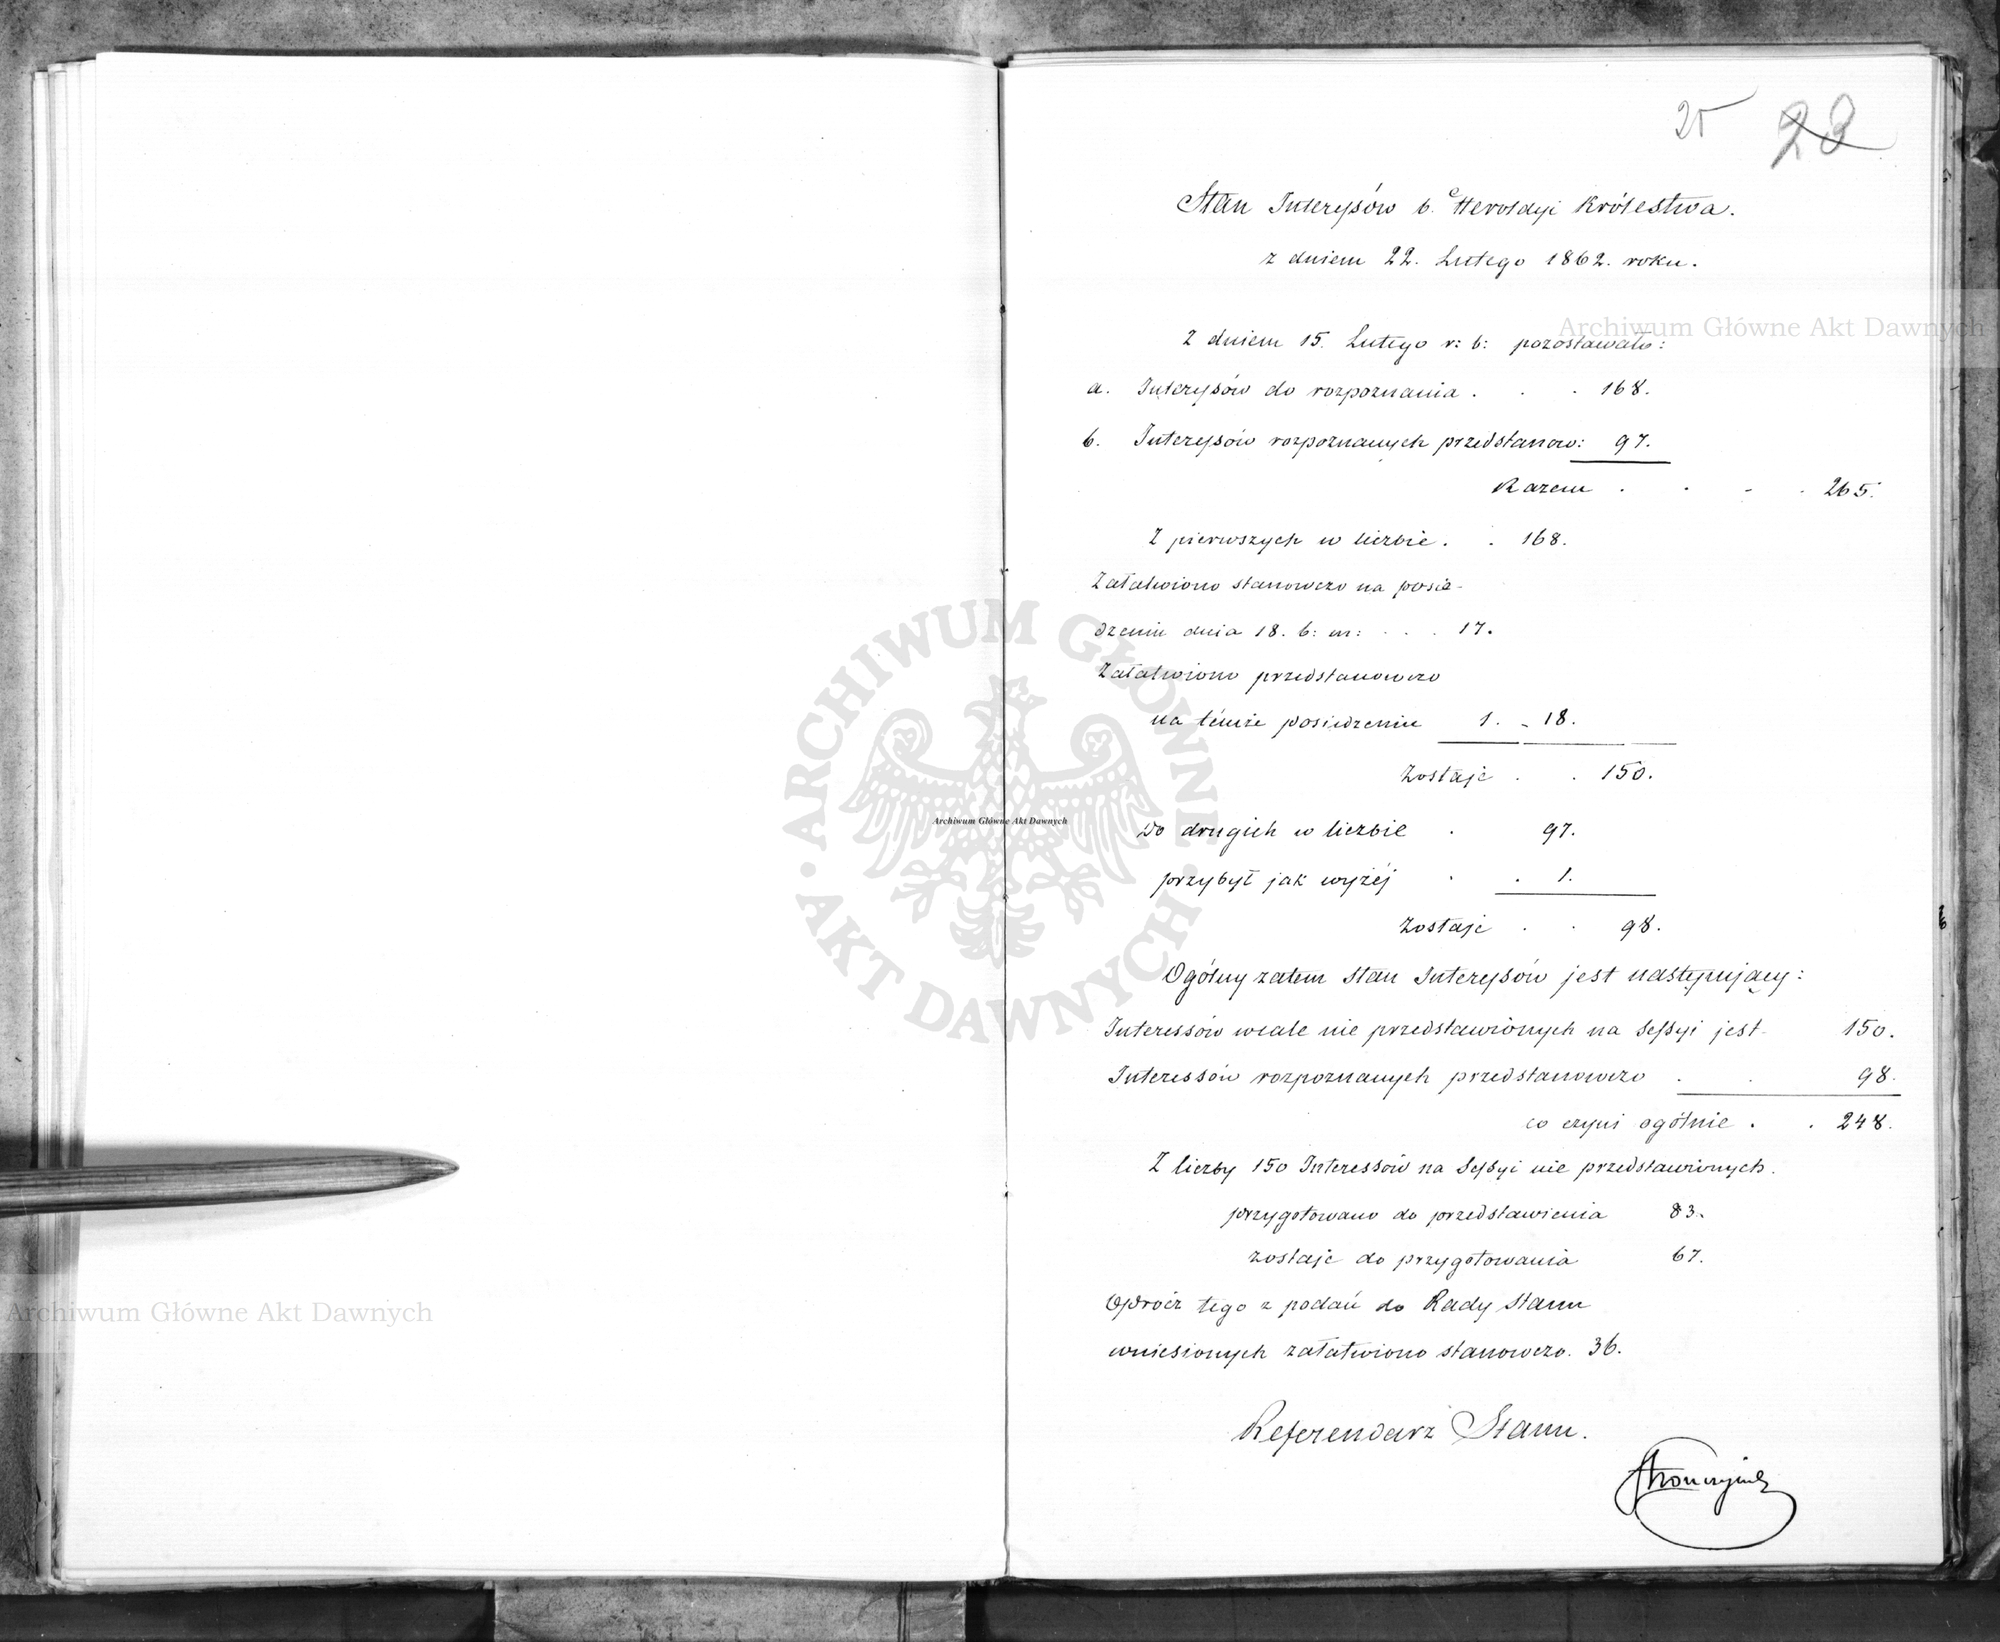 25 28
Stan Interesów b. Heroldyi Królestwa.
z dniem 22. Lutego 1862. roku.
Z dniem 15. Lutego r: b: pozostawało:
a. Interesów do rozpoznania . . . 168.
b. Interesów rozpoznanych przedstanow: 97.
Razem . . . . 265.
Z pierwszych w liczbie . . 168.
Załatwiono stanowczo na posie-
dzeniu dnia 18. b: m: . . . 17.
Załatwiono przedstanowczo
na témże posiedzeniu 1. - 18.
Zostaje . . 150.
Do drugich w liczbie . 97.
przybył jak wyżéj . . 1.
Zostaje . . 98.
Ogólny zatem stan Interesów jest następujący:
Interessów wcale nie przedstawionych na Sessyi jest 150.
Interessów rozpoznanych przedstanowczo . . 98.
co czyni ogólnie . . 248.
Z liczby 150 Interessów na Sessyi nie przedstawionych.
przygotowano do przedstawienia 83.
zostaje do przygotowania 67.
Oprócz tego z podań do Rady Stanu
wniesionych załatwiono stanowczo. 36.
Referendarz Stanu.
Stronczyński
Archiwum Główne Akt Dawnych
ARCHIWUM GŁÓWNE
Archiwum Główne Akt Dawnych
· AKT DAWNYCH ·
Archiwum Główne Akt Dawnych